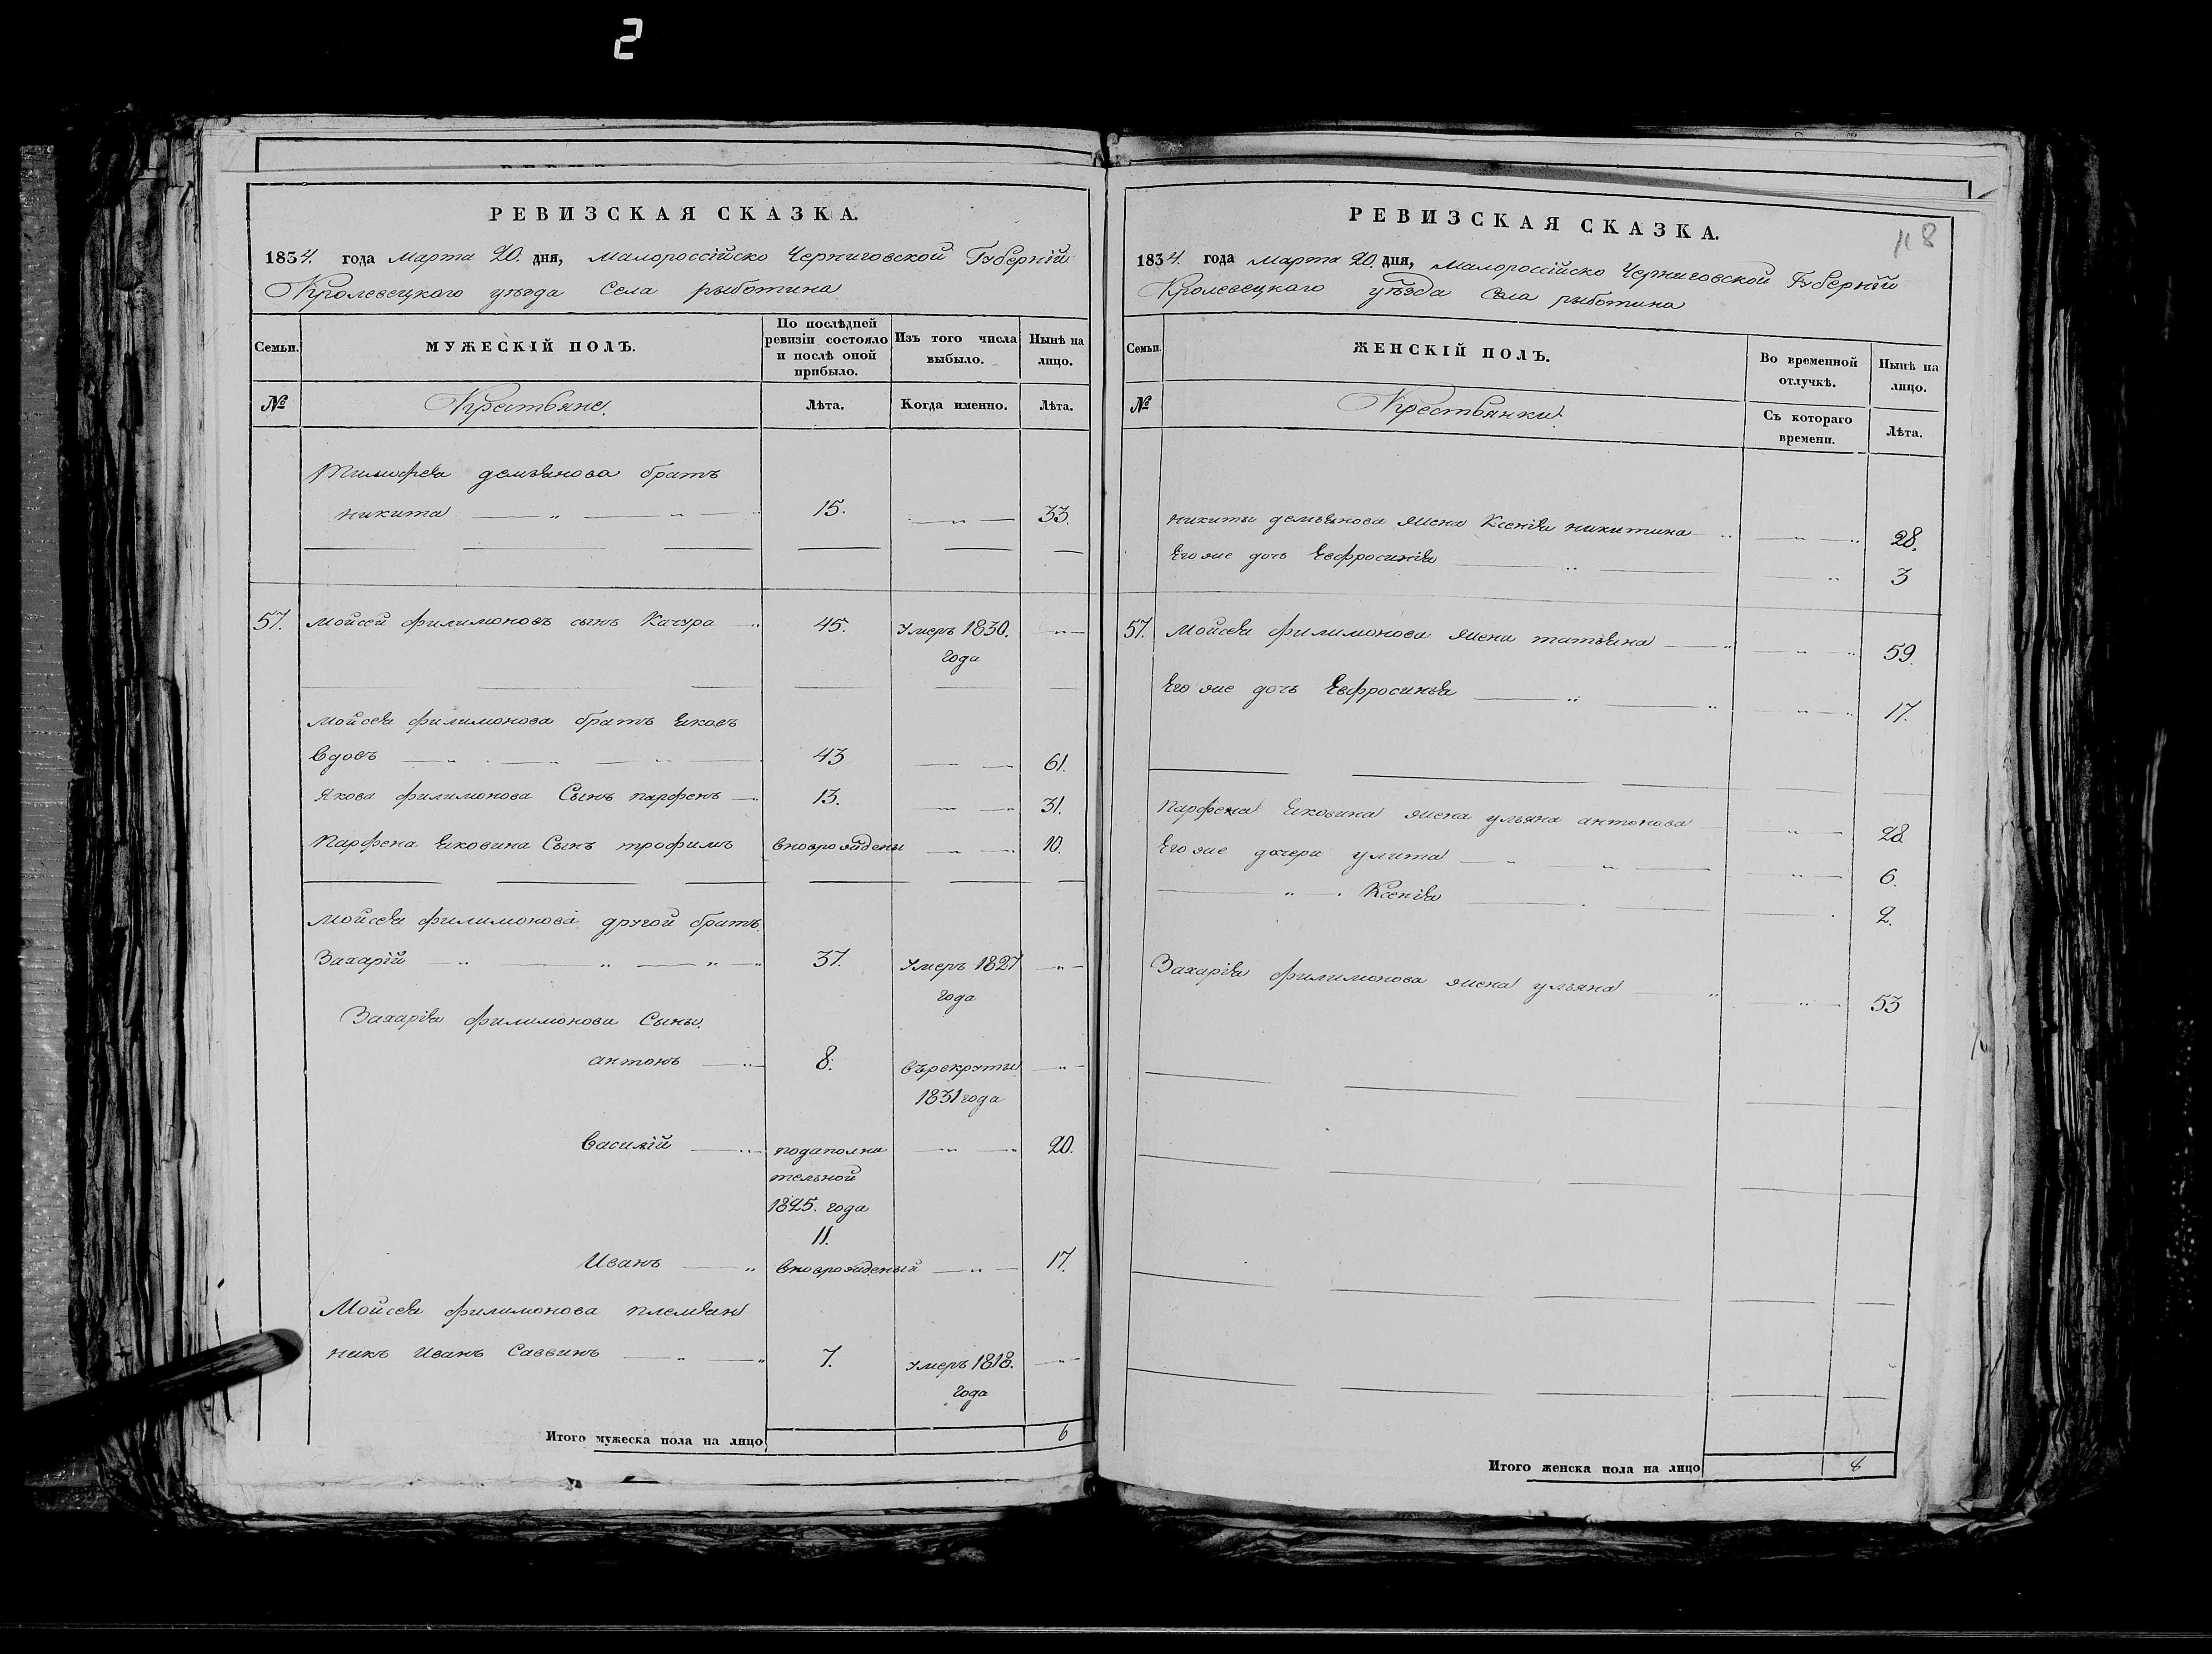 2
РЕВИЗСКАЯ СКАЗКА.
1834. года марта 20. дня, Малороссійско Черниговской Губерній
Кролевецкаго уѣзда Села рыботина
Семьи.
МУЖЕСКІЙ ПОЛЪ.
По послѣдней ревизіи состояло и послѣ оной прибыло.
Изъ того числа выбыло.
Нынѣ на лицо.
№
Крестьяне.
Лѣта.
Когда именно.
Лѣта.
Тимофея демьянова братъ
никита 15. 33.
57. Мойсей филимоновъ сынъ Качура 45. Умеръ 1830. года
Мойсея филимонова братъ яковъ
вдовъ 43 61.
Якова филимонова Сынъ парфенъ 13. 31.
Парфена яковина Сынъ трофимъ вноврожденый 10.
Мойсея филимонова другой братъ
Захарій 37. Умеръ 1827 года
Захарія филимонова Сыны.
антонъ 8. въ рекруты 1831 года
Василій подаполни тельной 1825. года 11. 20.
Иванъ вноврожденый 17.
Мойсея филимонова племян
никъ Иванъ Саввинъ 7. умеръ 1818. года
Итого мужеска пола на лицо 6
118
РЕВИЗСКАЯ СКАЗКА.
1834. года марта 20. дня, Малороссійско Черниговской Губерній
Кролевецкаго уѣзда Села рыботина
Семьи.
ЖЕНСКІЙ ПОЛЪ.
Во временной отлучкѣ.
Нынѣ на лицо.
№
Крестьянки.
Съ котораго времени.
Лѣта.
никиты демьянова жена Ксенія никитина 28.
Его же дочь Евфросинія 3
57. Мойсея филимонова жена татьяна 59.
Его же дочь Евфросинья 17.
Парфена яковина жена ульяна антонова 28
Его же дочери улита 6.
Ксенія 2.
Захарія филимонова жена ульяна 53
Итого женска пола на лицо 8